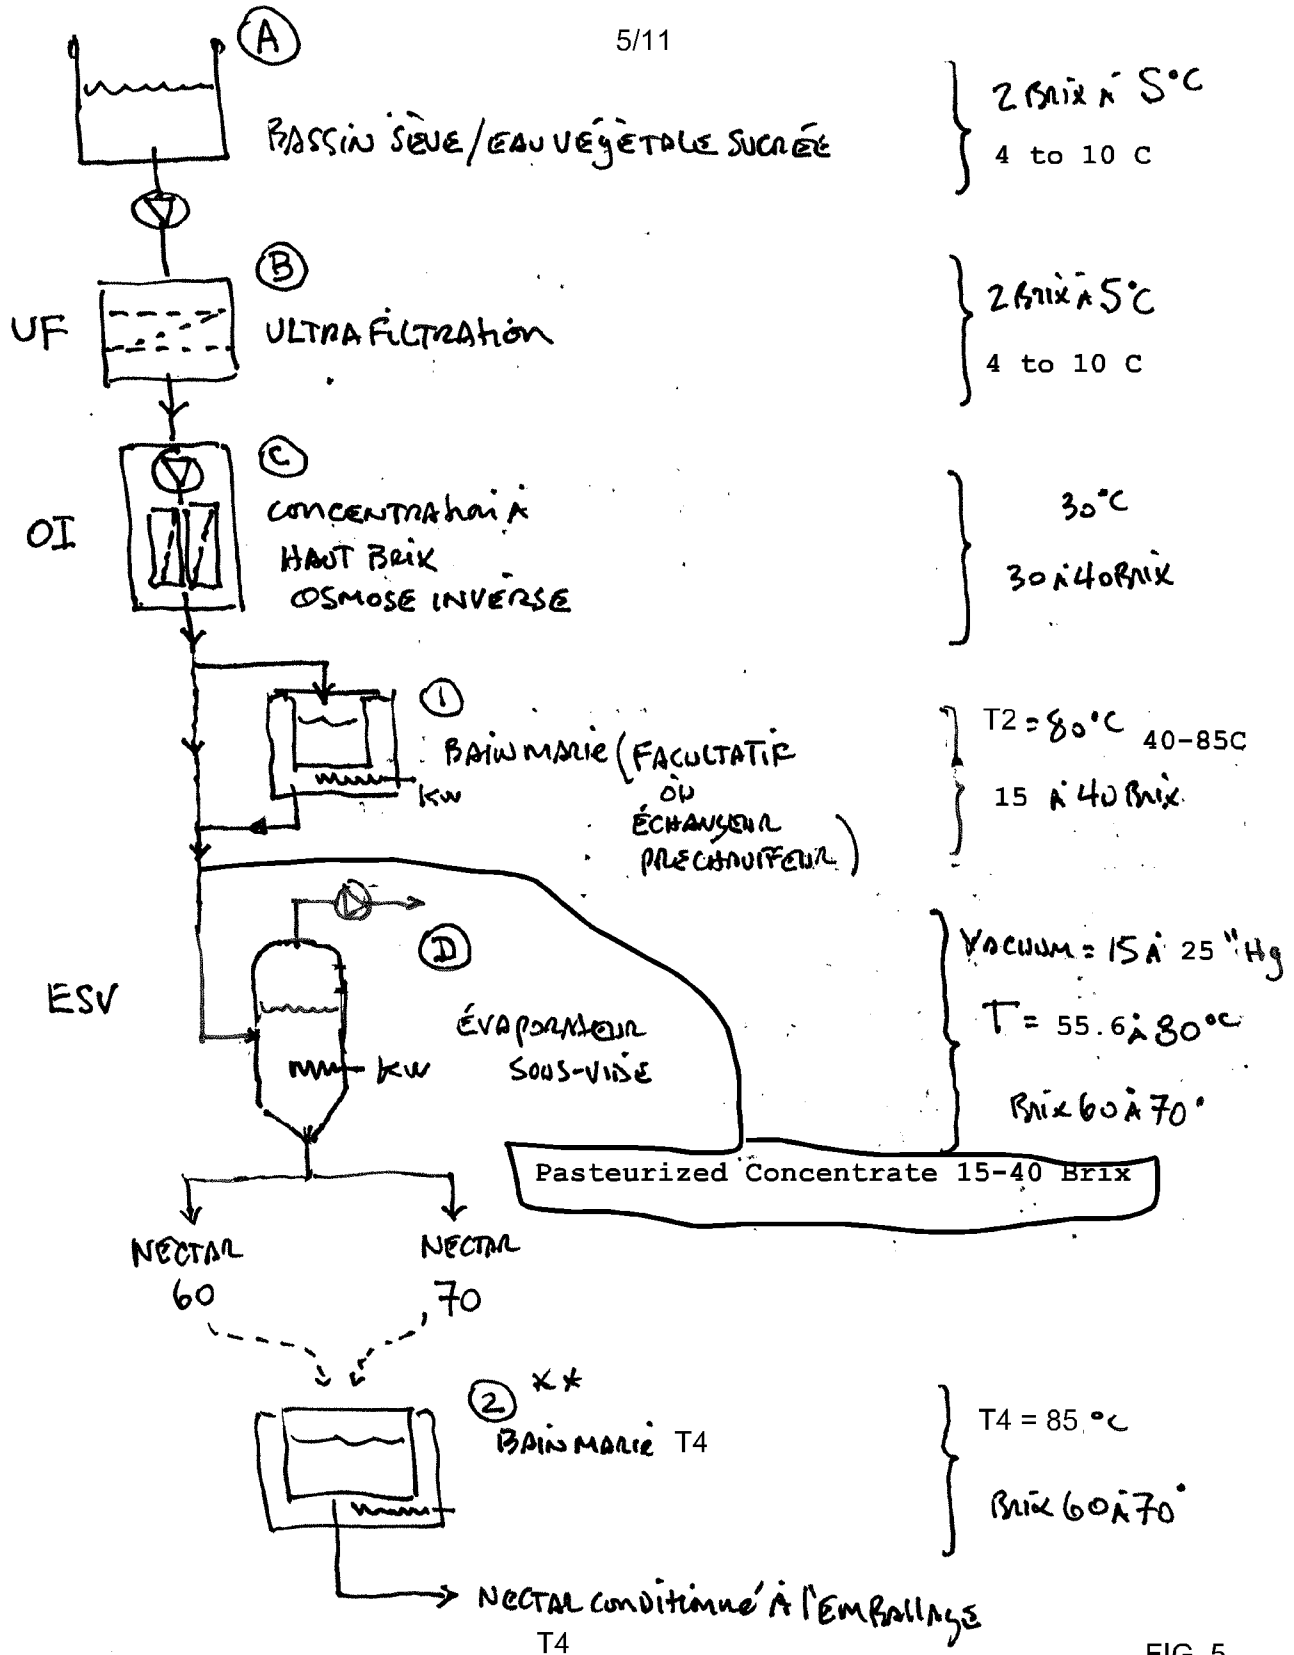 5/11
A
BASSIN SÈVE/EAU VÉGÉTALE SUCRÉE
2 BRIX À 5°C
4 to 10 C
B
UF
ULTRAFILTRATION
2 BRIX À 5°C
4 to 10 C
C
OI
CONCENTRATION À
HAUT BRIX
OSMOSE INVERSE
30°C
30 À 40 BRIX
1
BAIN MARIE (FACULTATIF
OU
ÉCHANGEUR
PRÉCHAUFFEUR)
KW
T2 = 80°C 40-85C
15 À 40 BRIX
D
ESV
ÉVAPORATEUR
SOUS-VIDE
KW
VACUUM = 15 À 25 "Hg
T = 55.6 À 80°C
BRIX 60 À 70°
Pasteurized Concentrate 15-40 Brix
NECTAR
60
NECTAR
70
2 **
BAIN MARIE T4
T4 = 85 °C
BRIX 60 À 70°
NECTAR conditionné À l'EMBALLAGE
T4
FIG. 5